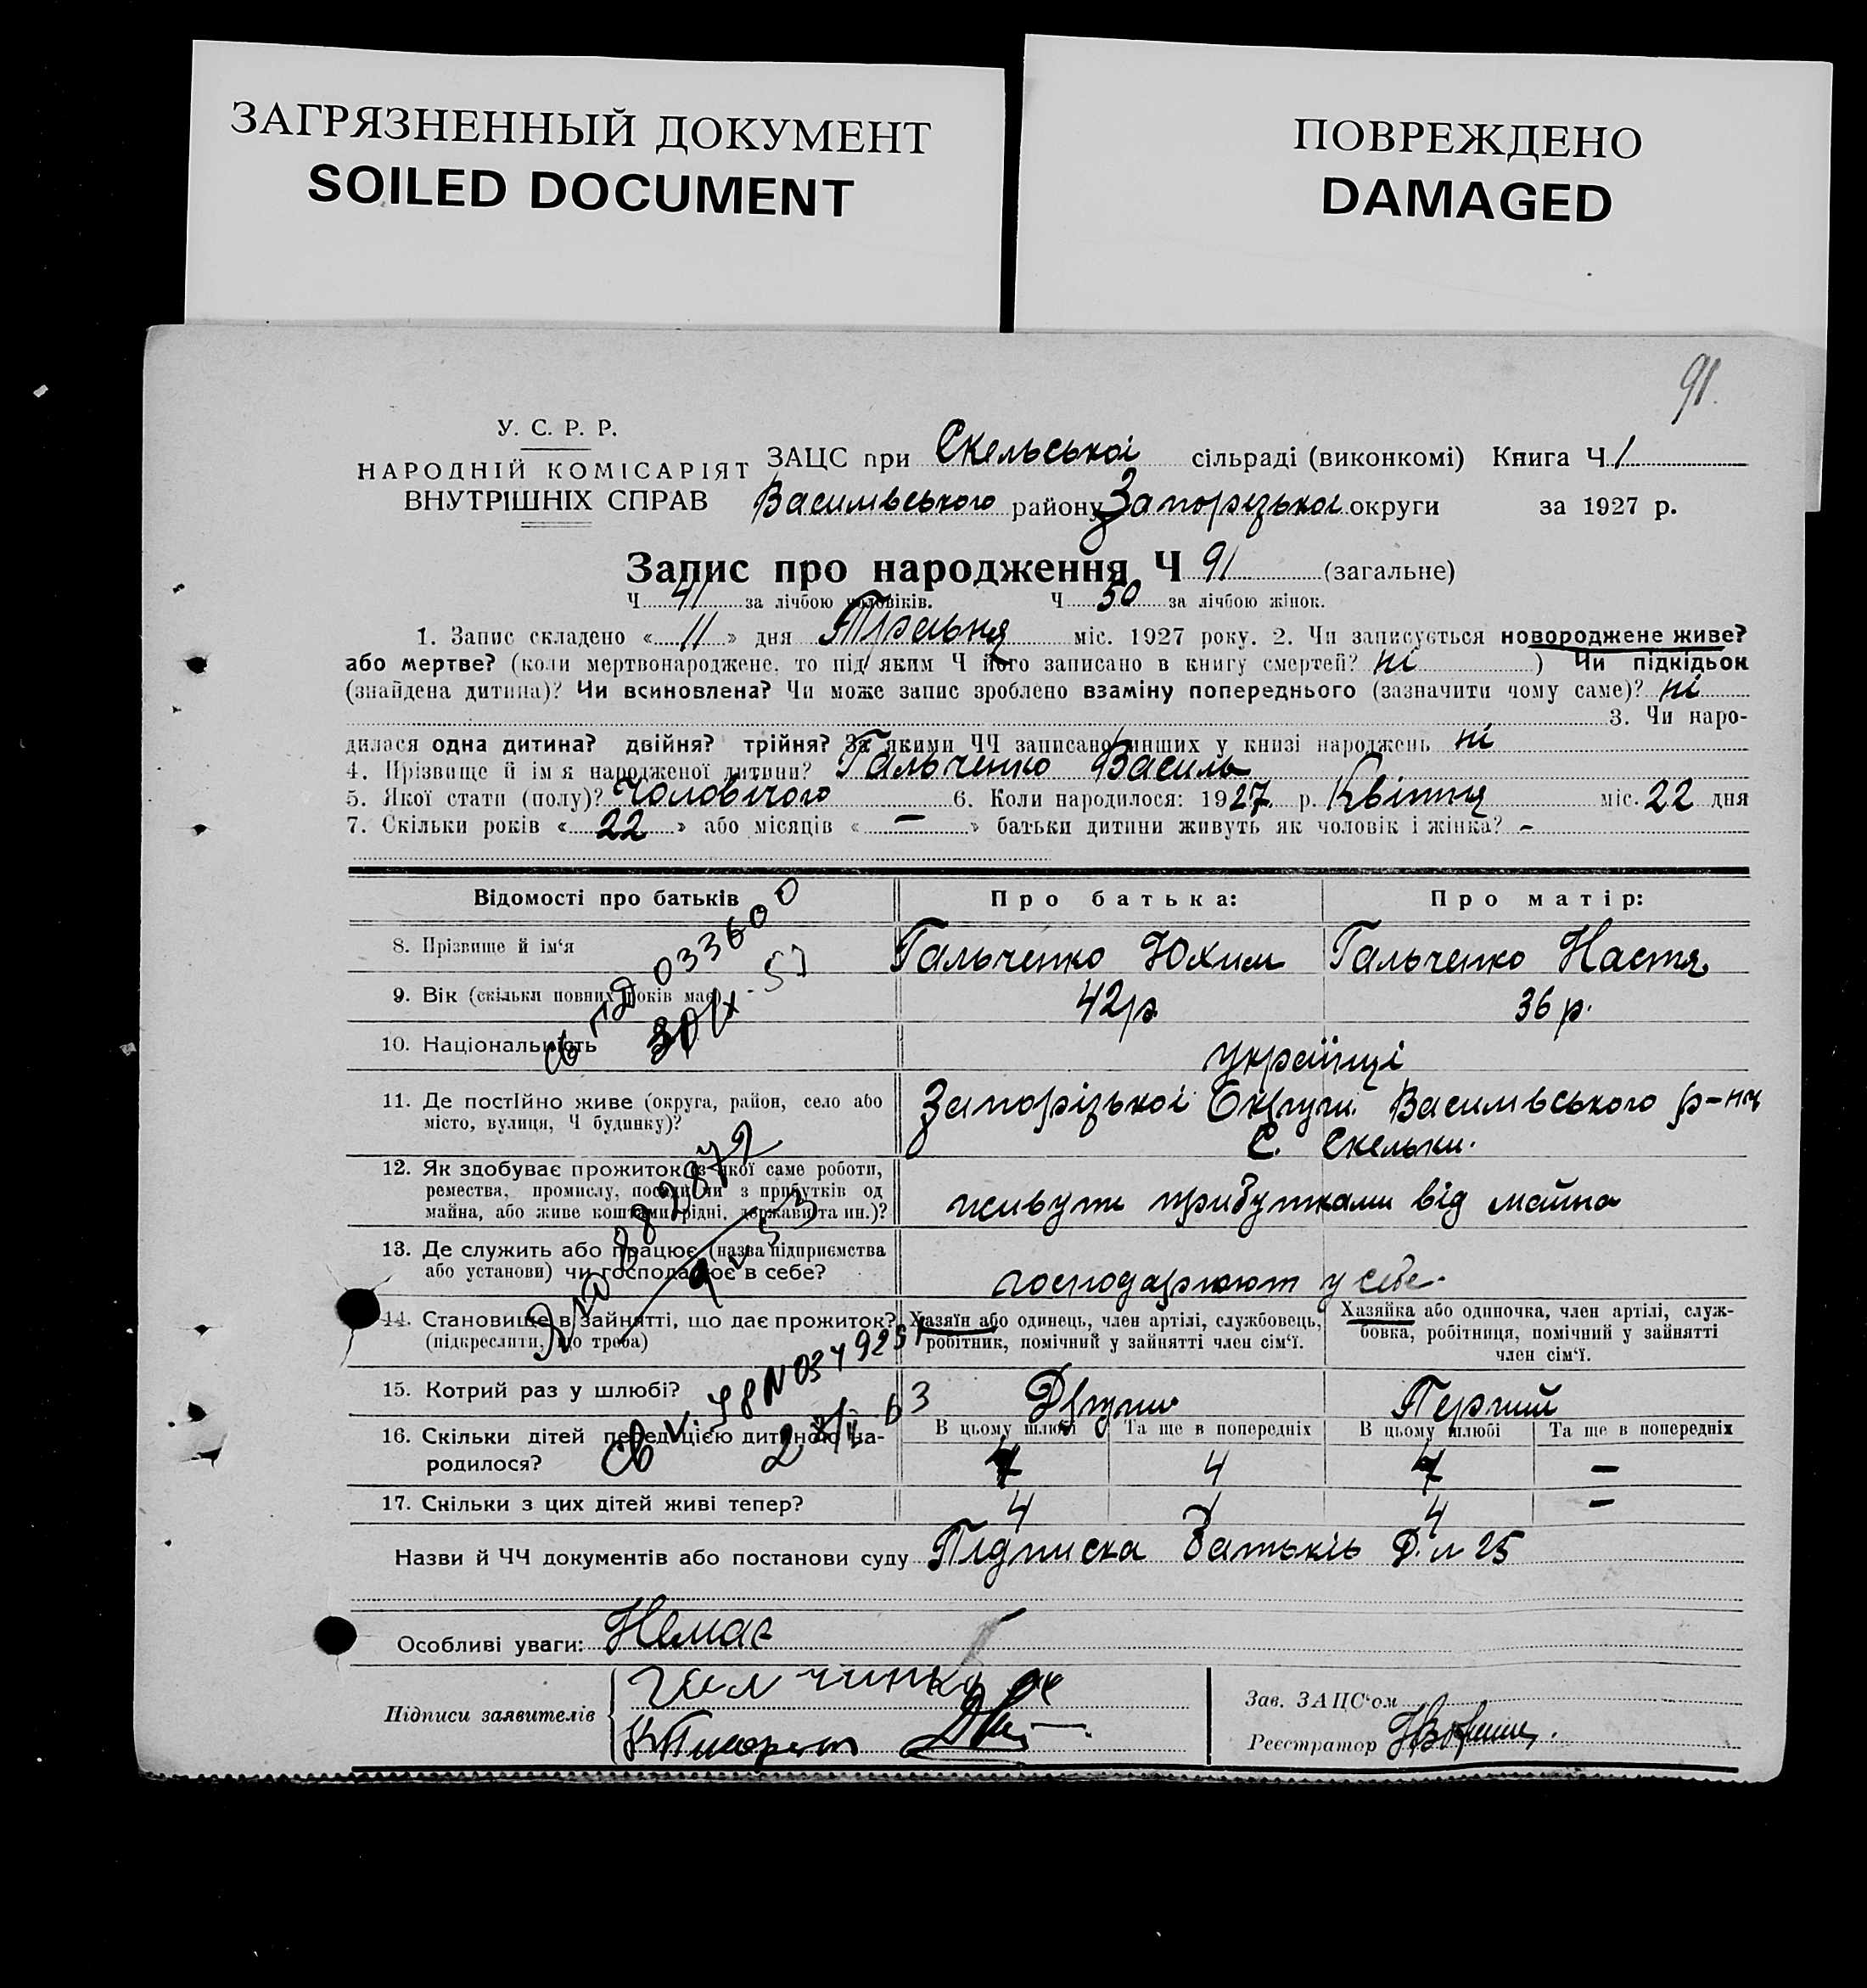 ЗАГРЯЗНЕННЫЙ ДОКУМЕНТ
SOILED DOCUMENT
ПОВРЕЖДЕНО
DAMAGED
91.
У. С. Р. Р.
НАРОДНІЙ КОМІСАРІЯТ
ВНУТРІШНІХ СПРАВ
ЗАЦС при Скельської сільраді (виконкомі) Книга Ч 1
Василівського району Запорізької округи за 1927 р.
Запис про народження Ч 91 (загальне)
Ч 41 за лічбою чоловіків. Ч 50 за лічбою жінок.
1. Запис складено « 11 » дня Травня міс. 1927 року. 2. Чи записується новороджене живе?
або мертве? (коли мертвонароджене, то під яким Ч його записано в книгу смертей? ні ) Чи підкідьок
(знайдена дитина)? Чи всиновлена? Чи може запис зроблено взаміну попереднього (зазначити чому саме)? ні
3. Чи наро-
дилася одна дитина? двійня? трійня? За якими ЧЧ записано инших у книзі народжень ні
4. Прізвище й ім'я народженої дитини? Гальченко Василь
5. Якої стати (полу)? Чоловічого 6. Коли народилося: 1927 р. Квітня міс. 22 дня
7. Скільки років « 22 » або місяців « — » батьки дитини живуть як чоловік і жінка? -
Відомості про батьків
Про батька:
Про матір:
8. Прізвище й ім'я
Гальченко Юхим
Гальченко Настя
9. Вік (скільки повних років має)
42 р.
36 р.
10. Національність
українці
11. Де постійно живе (округа, район, село або
місто, вулиця, Ч будинку)?
Запорізької Округи. Василівського р-ну
С. Скельки.
12. Як здобуває прожиток (з якої саме роботи,
ремества, промислу, посади чи з прибутків од
майна, або живе коштами рідні, держави та ин.)?
живуть прибутками від майна
13. Де служить або працює (назва підприємства
або установи) чи господарює в себе?
господарюют у себе.
14. Становище в зайнятті, що дає прожиток?
(підкреслити, що треба)
Хазяїн або одинець, член артілі, службовець,
робітник, помічний у зайнятті член сім'ї.
Хазяйка або одиночка, член артілі, служ-
бовка, робітниця, помічний у зайнятті
член сім'ї.
15. Котрий раз у шлюбі?
Другий
Перший
16. Скільки дітей перед цією дитиною на-
родилося?
В цьому шлюбі
Та ще в попередніх
В цьому шлюбі
Та ще в попередніх
7
4
7
—
17. Скільки з цих дітей живі тепер?
4
1
4
—
Назви й ЧЧ документів або постанови суду Підписка батьків
Особливі уваги: Немає
Підписи заявителів
Зав. ЗАЦС'ом
Реєстратор